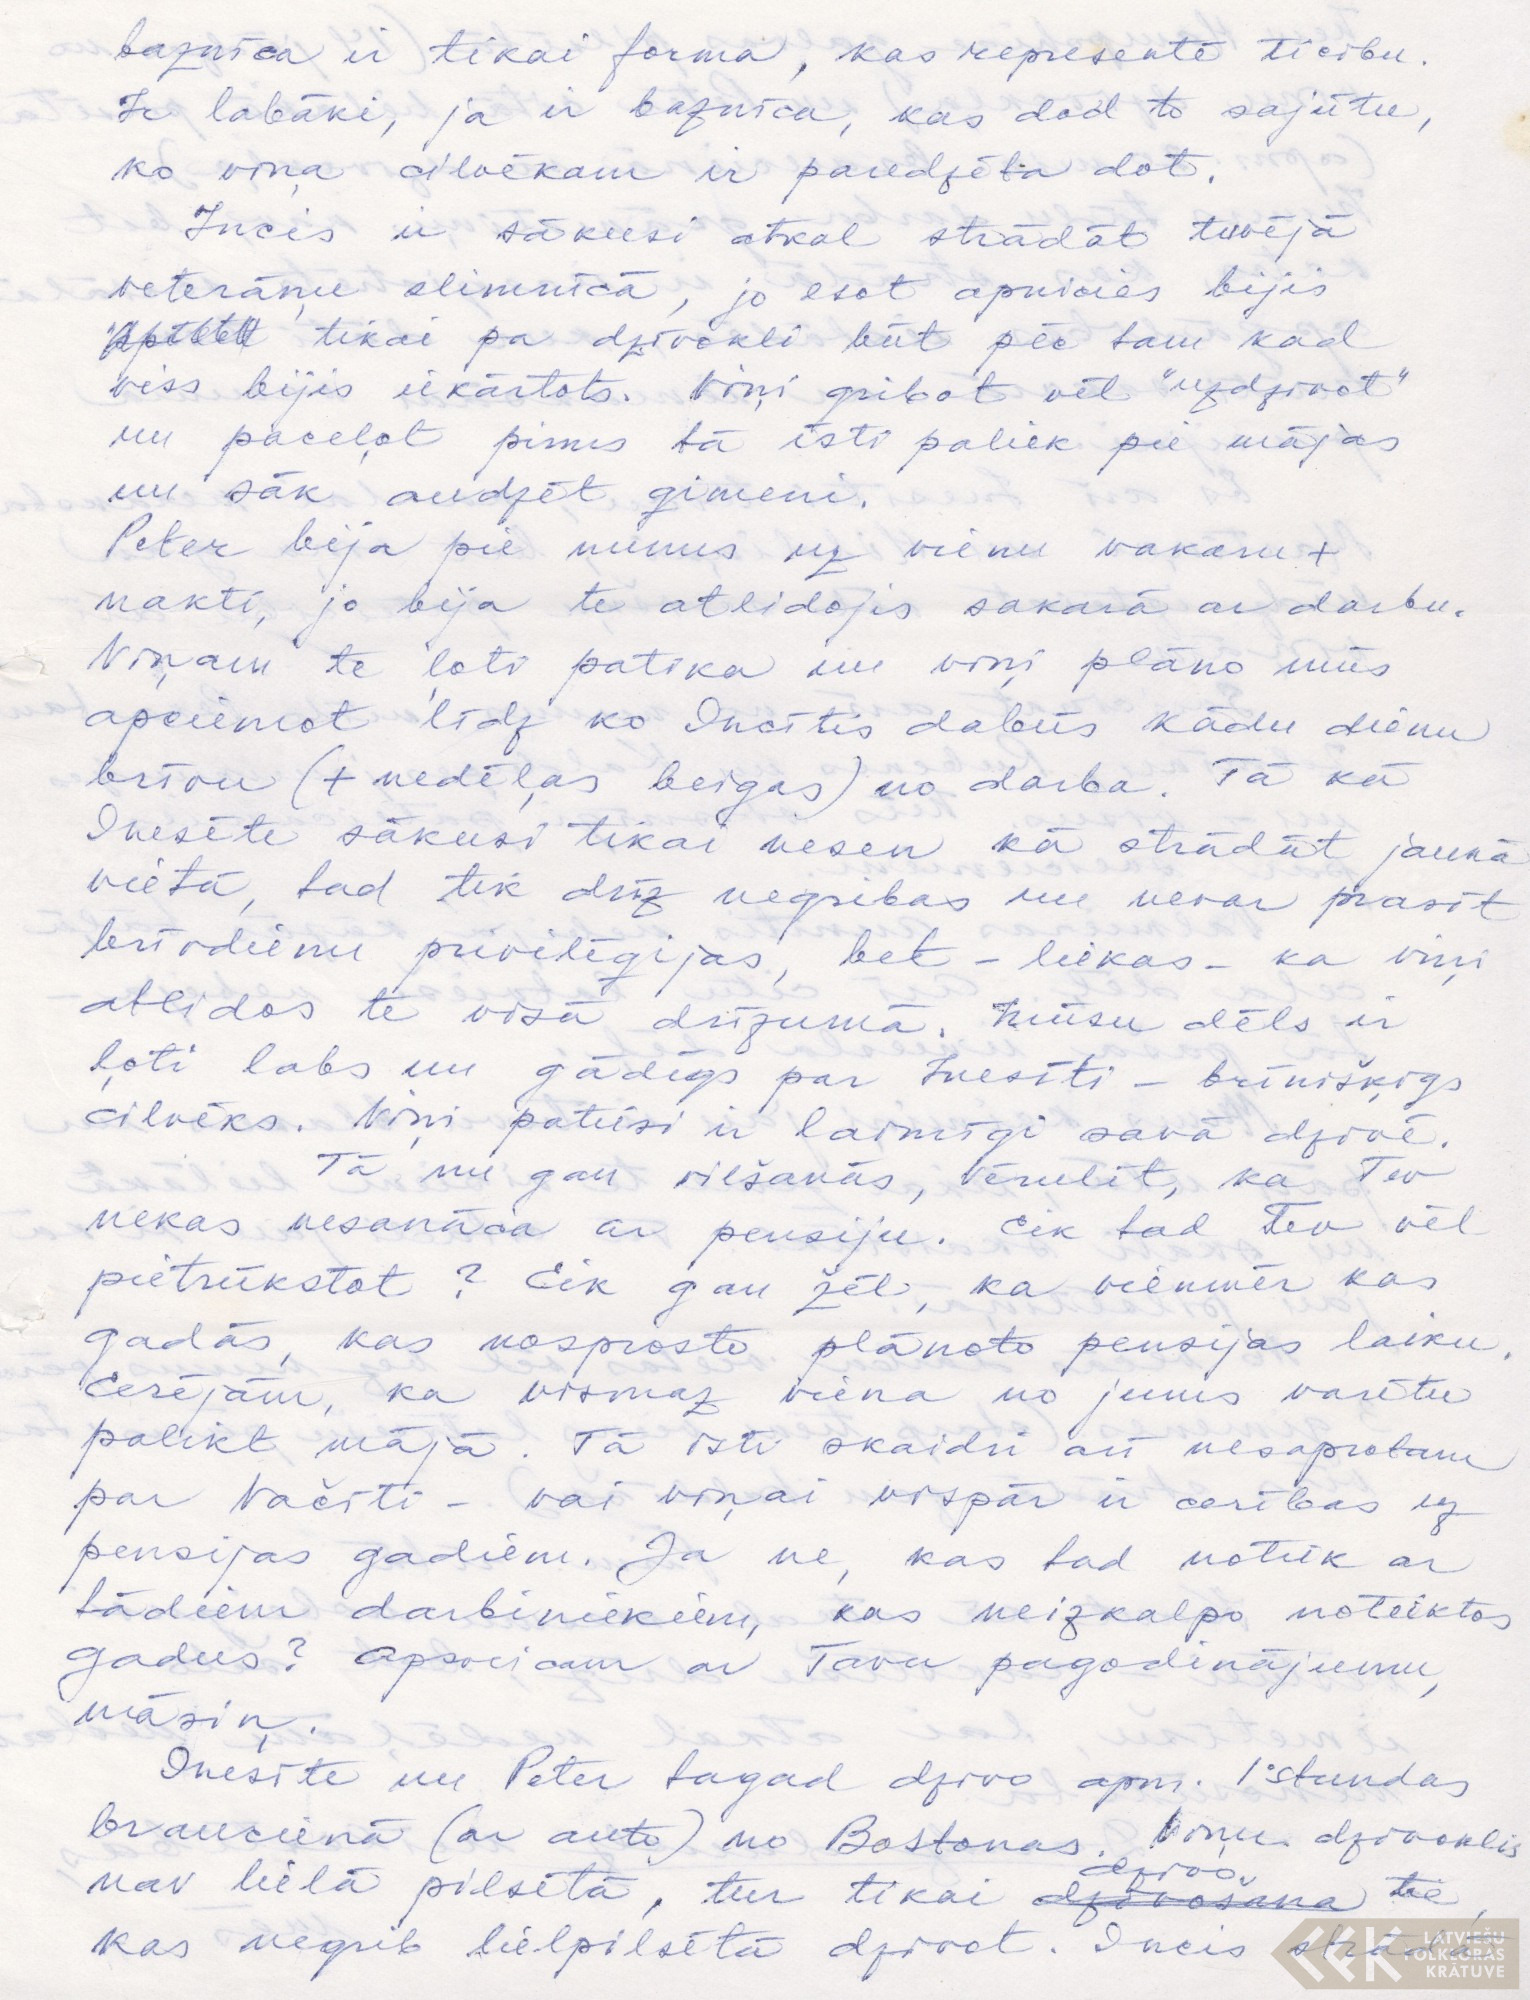 baznīca ir tikai forma, kas represente ticību.
Ir labāki, ja ir baznīca, kas dod to sajūtu,
ko viņa cilvēkam ir paredzēta dot.
Incis ir sākusi atkal strādāt tuvējā
veterāņu slimnīcā, jo esot apnicies bijis
tikai pa dzīvokli būt pēc tam kad
viss bijis iekārtots. Viņi gribot vēl "uzdzīvot"
un paceļot pirms tā īsti paliek pie mājas
un sāk audzēt ģimeni.
Peter bija pie mums uz vienu vakaru +
nakti, jo bija te atlidojis sakarā ar darbu.
Viņam te ļoti patika un viņi plāno mūs
apciemot līdz ko Incītis dabūs kādu dienu
brīvu (+ nedēļas beigas) no darba. Tā kā
Inesīte sākusi tikai nesen kā strādāt jaunā
vietā, tad tik drīz negribas un nevar prasīt
brīvdienu privilēģijas, bet - liekas - ka viņi
atlidos te visā drīzumā. Mūsu dēls ir
ļoti labs un gādīgs par Inesīti - brīnišķīgs
cilvēks. Viņi patiesi ir laimīgi savā dzīvē.
Tā nu gan vilšanās, Vērulīt, ka Tev
nekas nesanāca ar pensiju. Cik tad Tev vēl
pietrūkstot? Cik gan žēl, ka vienmēr kas
gadās, kas nosprosto plānoto pensijas laiku.
Cerējām, ka vismaz viena no jums varētu
palikt mājā. Tā īsti skaidri arī nesaprotam
par Vačīti - vai viņai vispār ir cerības uz
pensijas gadiem. Ja ne, kas tad notiek ar
tādiem darbiniekiem, kas neizkalpo noteiktos
gadus? Apsveicam ar Tavu pagodinājumu,
māsiņ.
Inesīte un Peter tagad dzīvo apm. 1 stundas
braucienā (ar auto) no Bostonas. Viņu dzīvoklis
nav lielā pilsētā, tur tikai dzīvo tie,
kas negrib lielpilsētā dzīvot. Incis strādā
LATVIEŠU
FOLKLORAS
KRĀTUVE